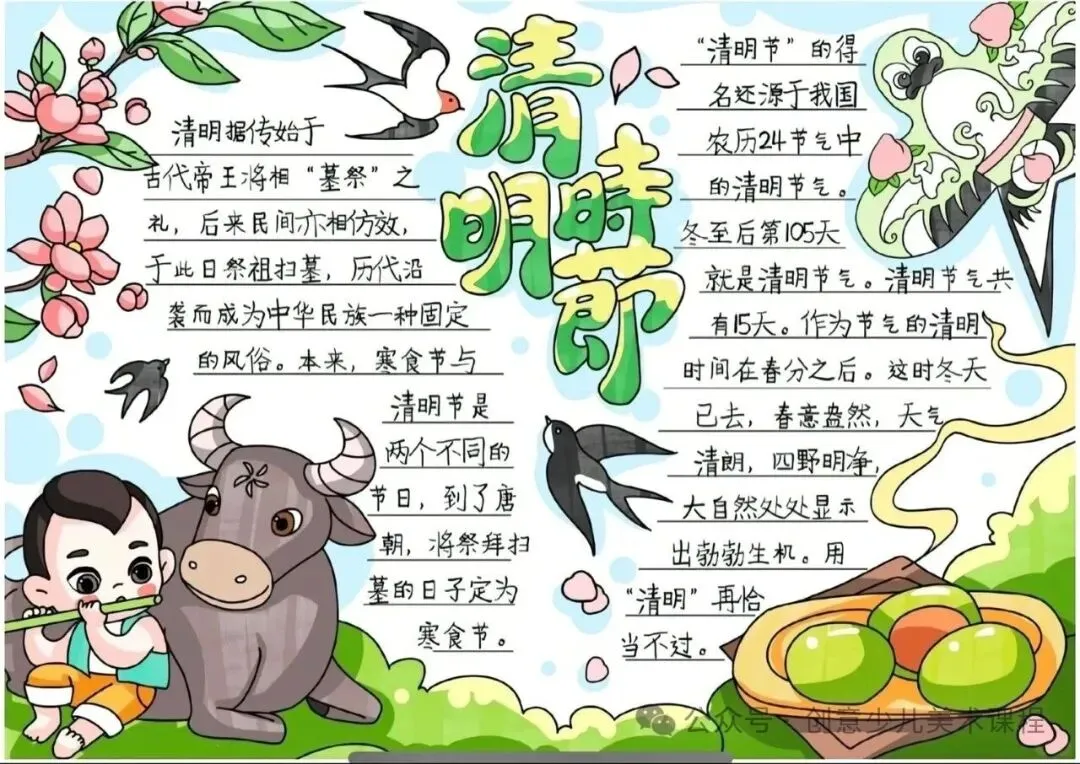 清明時節
清明据传始于
古代帝王将相“墓祭”之
礼，后来民间亦相仿效，
于此日祭祖扫墓，历代沿
袭而成为中华民族一种固定
的风俗。本来，寒食节与
清明节是
两个不同的
节日，到了唐
朝，将祭拜扫
墓的日子定为
寒食节。
“清明节”的得
名还源于我国
农历24节气中
的清明节气。
冬至后第105天
就是清明节气。清明节气共
有15天。作为节气的清明
时间在春分之后。这时冬天
已去，春意盎然，天气
清朗，四野明净，
大自然处处显示
出勃勃生机。用
“清明”再恰
当不过。
公众号·创意少儿美术课程